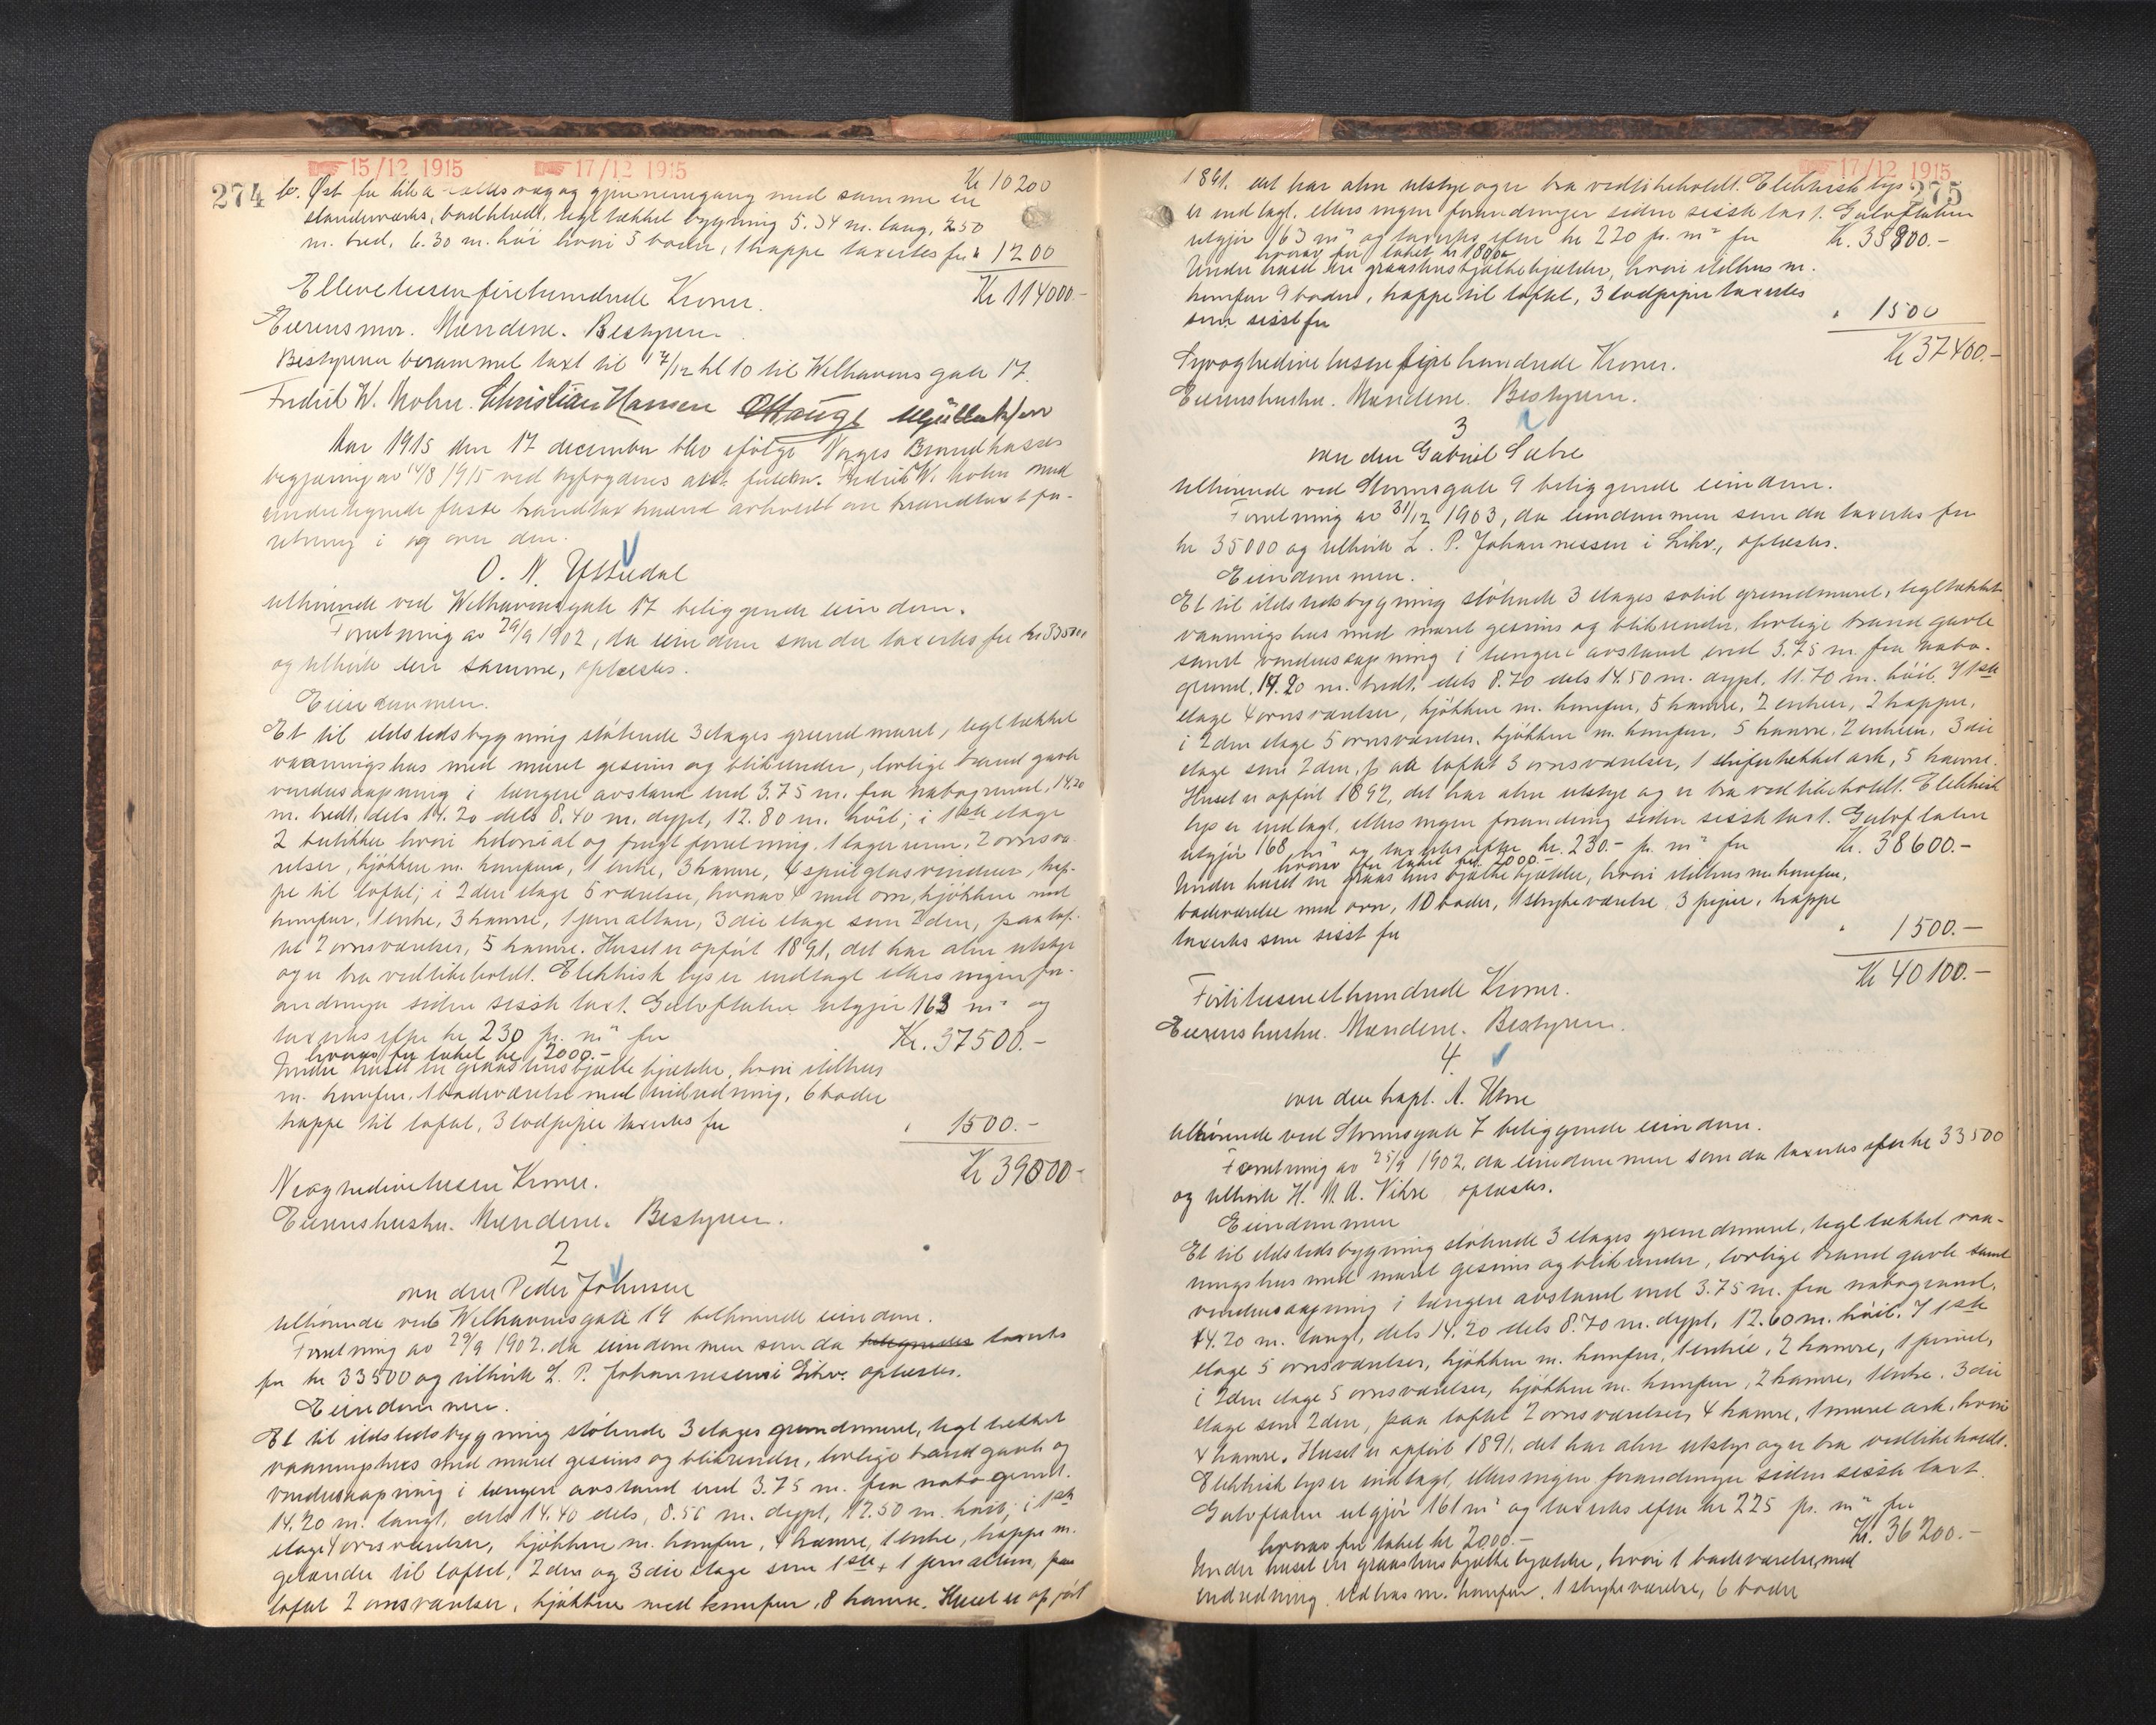 15/12 1915 17/12 1915
274
b. Øst for lit. a væg og gjennemgang med samme en Kr 10200
standerværks, bordklædt, tegltækket bygning 5.34 m. lang, 2.50
m. bred, 6.30 m. höi hvori 5 boder, 1 trappe taxertes for " 1200
Kr 11400.-
Ellevetusenfirehundrede Kroner.
Eierens mor. Mændene. Bestyreren.
Bestyreren berammet taxt til 17/12 kl 10 til Welhavens gate 17.
Fredrik W. Mohn. Christian Hansen O Hauge
Aar 1915 den 17 december blev ifölge Norges Brandkasses
begjæring av 14/8 1915 ved byfogdens aut. fuldm. Fredrik W. Mohn med
undertegnede faste brandtaxtmænd avholdt en brandtaxtfor-
retning i og over den
O. N. Ystedal
tilhörende ved Welhavensgate 17 beliggende eiendom.
Forretning av 29/9 1902, da eiendommen som da taxertes for kr 33500
og tilhörte den samme, oplæstes.
Eiendommen.
Et til ildstedsbygning stötende 3 etages grundmuret, tegltækket
vaaningshus med muret gesims og blikrender, lovlige brandgavle
vindusaapning i længere avstand end 3.75 m. fra nabogrund, 14,20
m. bredt, dels 14.20 dels 8.40 m. dypt, 12.80 m. höit; i 1ste etage
2 butikker hvori kolonial og frugt forretning, 1 lagerrum, 2 ovnsvæ-
relser, kjökken m. komfur, 1 entre, 3 kamre, 4 speilglasvinduer, trap-
pe til loftet; i 2den etage 5 værelser, hvorav 4 med ovn, kjökken med
komfur, 1 entre, 3 kamre, 1 jernaltan, 3die etage som 2den, paa lof-
tet 2 ovnsværelser, 5 kamre. Huset er opfört 1891, det har alm utstyr
og er bra vedlikeholdt. Elektrisk lys er indlagt ellers ingen for-
andringer siden sisste taxt. Gulvflaten utgjör 163 m² og
taxertes efter kr 230 pr. m² for Kr. 37500.-
hvorav for taket kr 2000.-
Under huset er graastens bjælkekjælder, hvori ildhus
m. komfur, 1 badeværelse med indredning, 6 boder
trappe til loftet, 3 lodpiper taxertes for " 1500.-
Kr 39000.-
Niogtredivetusen Kroner.
Eierens hustru. Mændene. Bestyreren.
2
over den Peder Johnsen
tilhörende ved Welhavensgate 19 beliggende eiendom.
Forretning av 29/9 1902, da eiendommen som da taxertes
for kr 33500 og tilhörte L. P. Johannesen i Likv. oplæstes.
Eiendommen.
Et til ildstedsbygning stötende 3 etages grundmuret, tegltækket
vaaningshus med muret gesims og blikrender, lovlige brandgavle og
vindusaapning i længere avstand end 3.75 m. fra nabogrund.
14.20 m. langt, dels 14.40 dels, 8.56 m. dypt, 12.50 m. höit; i 1ste
etage 4 ovnsværelser, kjökken m. komfur, 4 kamre, 1 entre, trappe m.
gelænder til loftet, 2den og 3die etage som 1ste + 1 jernaltan, paa
loftet 2 ovnsværelser, kjökken med komfur, 8 kamre. Huset er opfört
17/12 1915
275
1891. det har alm utstyr og er bra vedlikeholdt. Elektrisk lys
er indlagt, ellers ingen forandringer siden sisste taxt. Gulvflaten
utgjör 163 m² og taxertes efter kr 220 pr. m² for Kr. 35900.-
hvorav for taket kr 1800.-
Under huset er graastensbjælkekjælder, hvori ildhus m.
komfur 9 boder, trappe til loftet, 3 lodpiper taxertes
som sisst for " 1500
Kr 37400.-
Syvogtredivetusenfirehundrede Kroner.
Eierens hustru. Mændene. Bestyreren.
3
over den Gabriel Sætre
tilhörende ved Stormsgate 9 beliggende eiendom.
Forretning av 31/12 1903, da eiendommen som da taxertes for
kr 35000 og tilhörte L. P. Johannessen i Likv., oplæstes.
Eiendommen.
Et til ildstedsbygning stötende 3 etages solid grundmuret, tegltækket
vaaningshus med muret gesims og blikrender, lovlige brandgavle
samt vindusaapning i længere avstand end 3.75 m. fra nabo-
grund, 14.20 m. bredt, dels 8.70 dels 14.50 m. dypt, 11.70 m. höit. I 1ste
etage 4 ovnsværelser, kjökken m. komfur, 5 kamre, 2 entreer, 2 trapper,
i 2den etage 5 ovnsværelser, kjökken m. komfur, 5 kamre, 2 entreer, 3die
etage som 2den, paa loftet 3 ovnsværelser, 1 skifertækket ark, 5 kamre.
Huset er opfört 1892, det har alm utstyr og er bra vedlikeholdt. Elektrisk
lys er indlagt, ellers ingen forandring siden sisste taxt. Gulvflaten
utgjör 168 m² og taxertes efter kr. 230.- pr. m² for Kr. 38600.-
hvorav for taket kr. 2000.-
Under huset er graastens bjælkekjælder, hvori ildhus m. komfur,
badeværelse med ovn, 10 boder, 1 strykeværelse, 3 piper, trappe
taxertes som sisst for " 1500.-
Kr 40100.-
Förtitusenethundrede Kroner.
Eierens hustru. Mændene. Bestyreren.
4.
over den kapt. A. Utne
tilhörende ved Stormsgate 7 beliggende eiendom.
Forretning av 25/9 1902, da eiendommen som da taxertes for kr 33500
og tilhörte H. M. A. Vikre oplæstes.
Eiendommen
Et til ildstedsbygning stötende 3 etages grundmuret, tegltækket vaa-
ningshus med muret gesims og blikrender, lovlige brandgavle samt
vindusaapning i længere avstand end 3.75 m. fra nabogrund,
14.20 m. langt, dels 14.20 dels 8.70 m. dypt, 12.60 m. höit. I 1ste
etage 5 ovnsværelser, kjökken m. komfur, 1 entré, 2 kamre,
i 2den etage 5 ovnsværelser, kjökken m. komfur, 2 kamre, 1 entre, 3die
etage som 2den, paa loftet 2 ovnsværelser, 4 kamre, 1 muret ark, hvori
4 kamre. Huset er opfört 1891, det har alm utstyr og er bra vedlikeholdt.
Elektrisk lys er indlagt, ellers ingen forandringer siden sisste taxt
Gulvflaten utgjör 161 m² og taxertes efter kr 225 pr. m² for
hvorav for taket kr 2000.- Kr. 36200.-
Under huset er graastensbjælkekjælder, hvori 1 badeværelse med
indredning, ildhus m. komfur, 1 strykeværelse, 6 boder